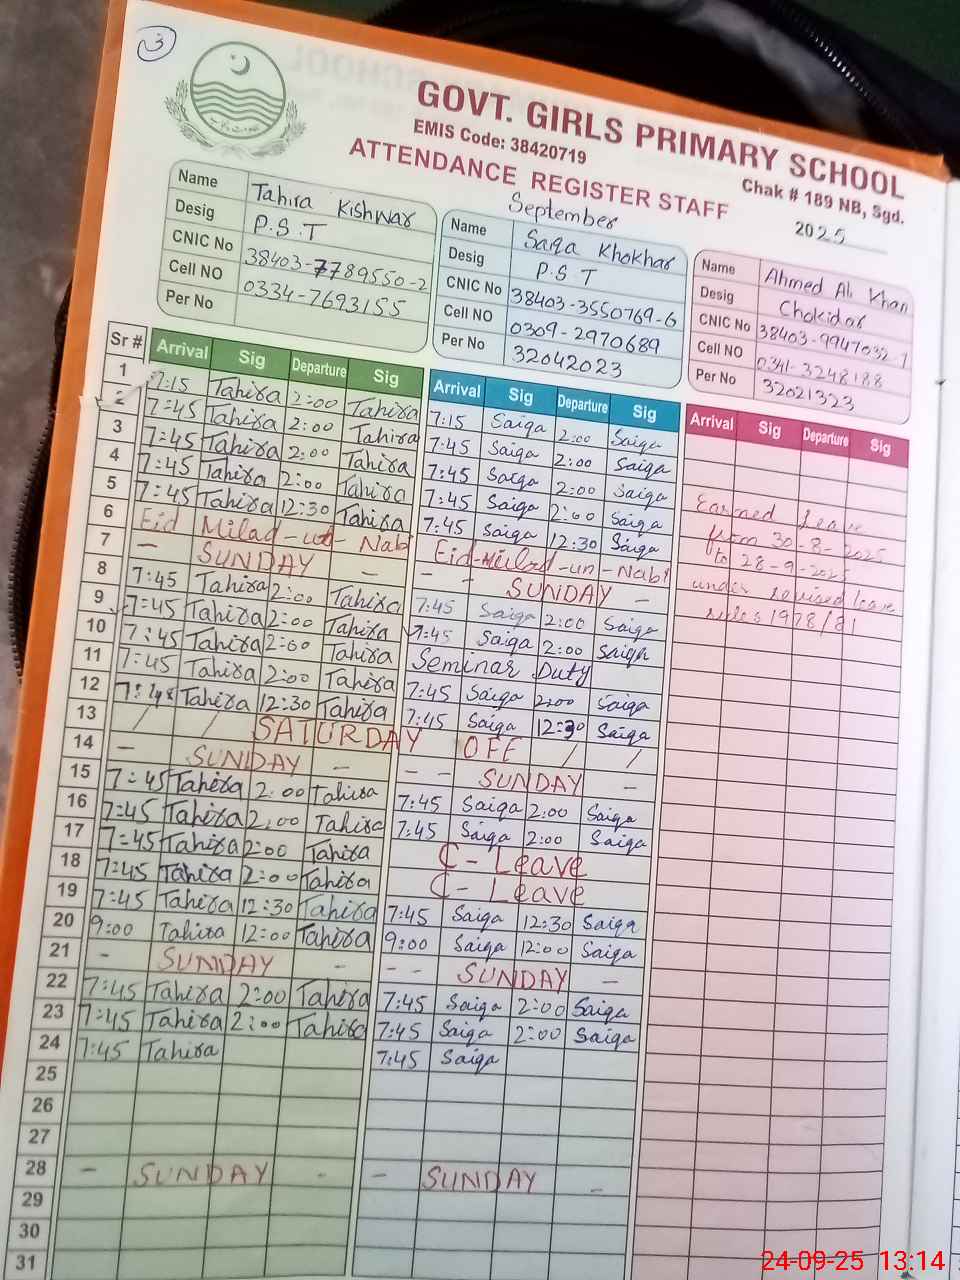 3
GOVT. GIRLS PRIMARY SCHOOL
EMIS Code: 38420719
Chak # 189 NB, Sgd.
ATTENDANCE REGISTER STAFF
September
2025
Name Tahira Kishwar
Desig P.S.T
CNIC No 38403-7789550-2
Cell NO 0334-7693155
Per No
Name Saiqa Khokhar
Desig P.S T
CNIC No 38403-3550769-6
Cell NO 0309-2970689
Per No 32042023
Name Ahmed Ali Khan
Desig Chokidar
CNIC No 38403-9947032-1
Cell NO 0341-3248188
Per No 32021323
Sr # Arrival Sig Departure Sig Arrival Sig Departure Sig Arrival Sig Departure Sig
1 7:15 Tahira 2:00 Tahira 7:15 Saiqa 2:00 Saiqa
2 7:45 Tahira 2:00 Tahira 7:45 Saiqa 2:00 Saiqa
3 7:45 Tahira 2:00 Tahira 7:45 Saiqa 2:00 Saiqa
4 7:45 Tahira 2:00 Tahira 7:45 Saiqa 2:00 Saiqa
5 7:45 Tahira 12:30 Tahira 7:45 Saiqa 12:30 Saiqa
6 Eid Milad-un-Nabi Eid-Milad-un-Nabi
7 - SUNDAY - - - SUNDAY -
8 7:45 Tahira 2:00 Tahira 7:45 Saiqa 2:00 Saiqa
9 7:45 Tahira 2:00 Tahira 7:45 Saiqa 2:00 Saiqa
10 7:45 Tahira 2:00 Tahira Seminar Duty
11 7:45 Tahira 2:00 Tahira 7:45 Saiqa 2:00 Saiqa
12 7:48 Tahira 12:30 Tahira 7:45 Saiqa 12:30 Saiqa
13 / / SATURDAY OFF / /
14 - SUNDAY - - - SUNDAY -
15 7:45 Tahira 2:00 Tahira 7:45 Saiqa 2:00 Saiqa
16 7:45 Tahira 2:00 Tahira 7:45 Saiqa 2:00 Saiqa
17 7:45 Tahira 2:00 Tahira C-Leave
18 7:45 Tahira 2:00 Tahira C-Leave
19 7:45 Tahira 12:30 Tahira 7:45 Saiqa 12:30 Saiqa
20 9:00 Tahira 12:00 Tahira 9:00 Saiqa 12:00 Saiqa
21 - SUNDAY - - - SUNDAY -
22 7:45 Tahira 2:00 Tahira 7:45 Saiqa 2:00 Saiqa
23 7:45 Tahira 2:00 Tahira 7:45 Saiqa 2:00 Saiqa
24 7:45 Tahira 7:45 Saiqa
25
26
27
28 - SUNDAY - - SUNDAY -
29
30
31
Earned Leave
from 30-8-2025
to 28-9-2025
under revised leave
rules 1978/81
24-09-25 13:14